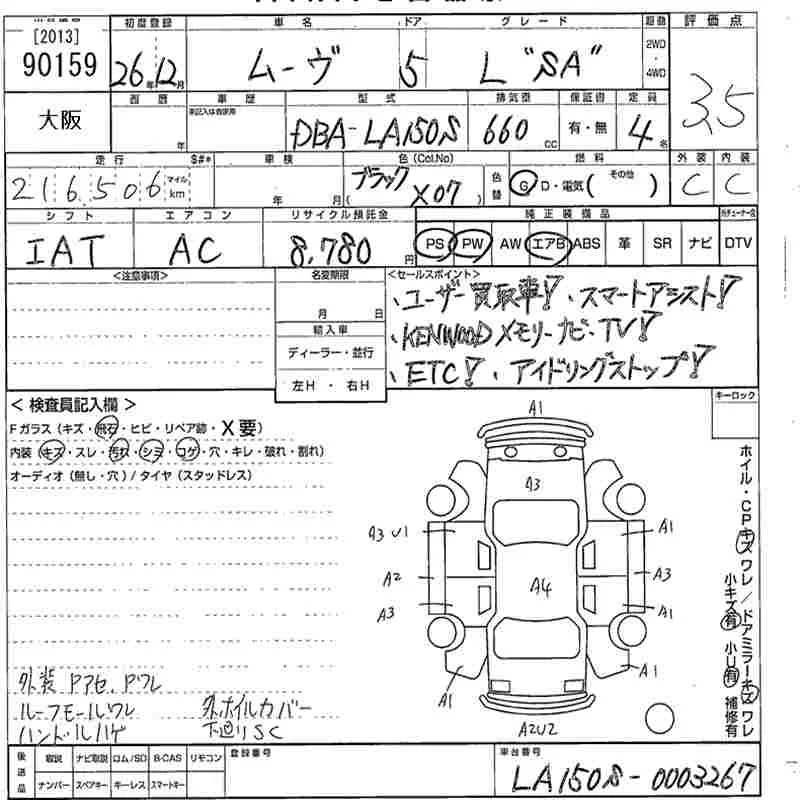 [2013]
90159
大阪
初度登録
26年12月
車名
ムーヴ
ドア
5
グレード
L "SA"
駆動
2WD
・
4WD
評価点
3.5
西暦
年
車歴
型式
DBA-LA150S
排気量
660 CC
保証書
有・無
定員
4名
走行
216506
マイル
km
S#*
車検
年 月
色(Col.No)
ブラック
( X07 )
色替
燃料
G D・電気( その他 )
外装
C
内装
C
シフト
IAT
エアコン
AC
リサイクル預託金
8,780円
純正装備品
PS PW AW エアB ABS 革 SR ナビ DTV
<注意事項>
名変期限
月 日
輸入車
ディーラー・並行
左H ・ 右H
<セールスポイント>
、ユーザー買取車! ・スマートアシスト!
、KENWOODメモリーナビ・TV!
、ETC! ・アイドリングストップ!
キーロック
< 検査員記入欄 >
Fガラス (キズ・飛石・ヒビ・リペア跡・X要)
内装 (キズ・スレ・汚れ・シミ・コゲ・穴・キレ・破れ・割れ)
オーディオ (無し・穴) / タイヤ (スタッドレス)
外装 Pアセ、Pワレ
ルーフモールワレ
ハンドルハゲ
外ホイルカバー
下廻りSC
A1
A3
A3 U1
A1
A2
A3
A4
A3
A1
A1
A1
A2U2
ホイル・CPキズワレ/ドアミラーキズワレ
小キズ有 小U有 補修有
後送品
取説 ナビ取説 ロム/SD B-CAS リモコン
ナンバー スペアキー キーレス スマートキー
登録番号
車台番号
LA150S-0003267